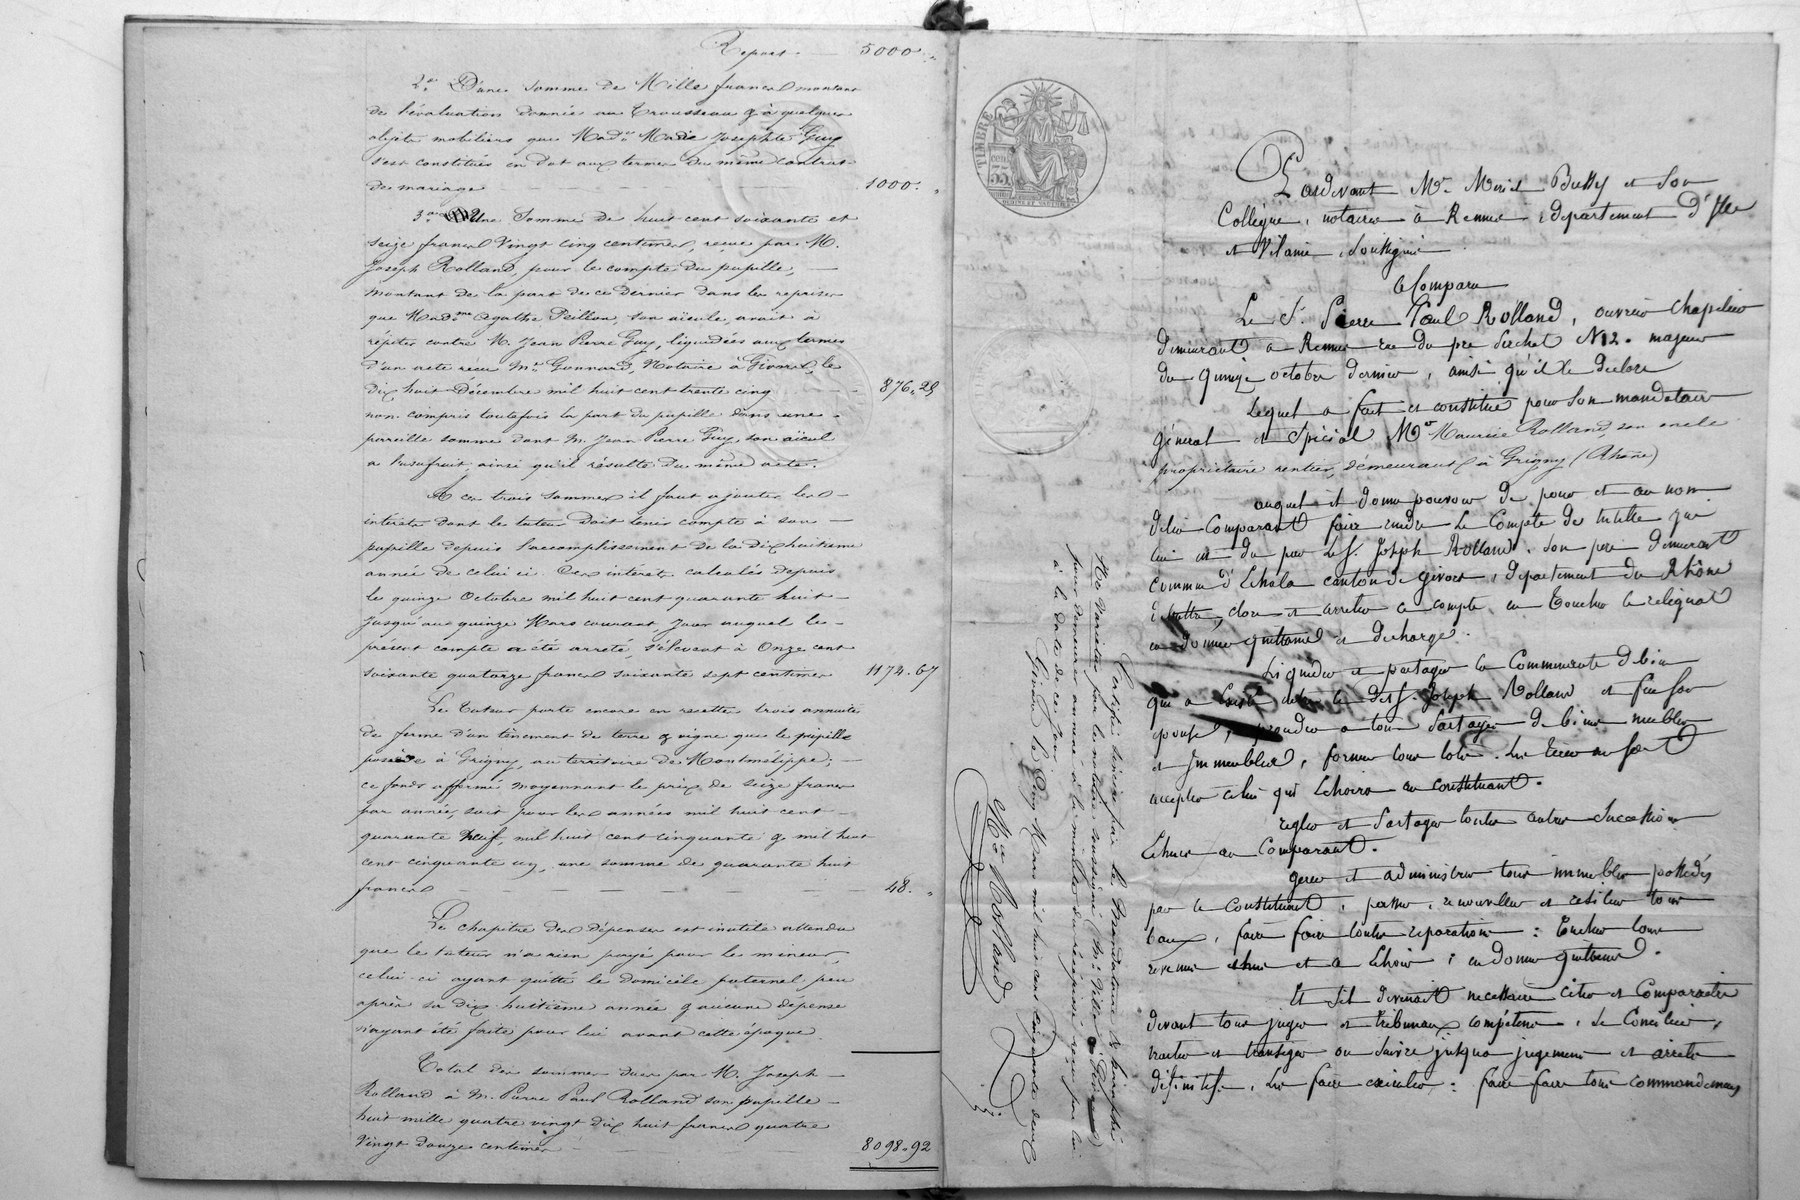 Report 5000 "
2.° D'une somme de Mille francs montant
de l'évaluation donnée au Trousseau & à quelques
objets mobiliers que Mad.e Marie Josephte Guy
s'est constitués en dot aux termes du même contrat
de mariage 1000. "
3.° Une Somme de huit cent soixante et
seize francs Vingt cinq centimes, reçue par M.
Joseph Rolland, pour le compte du pupille,
montant de la part de ce dernier dans les reprises
que Mad.me Agathe Peillon, son aïeule, avait à
répéter contre M. Jean Pierre Guy, liquidées aux termes
d'un acte reçu M.e Gonnard, Notaire à Givors, le
Dix huit Décembre mil huit cent trente cinq 876,,25
non compris toutefois la part du pupille dans une
pareille somme dont M. Jean Pierre Guy, son aïeul
a l'usufruit, ainsi qu'il résulte du même acte.
A ces trois sommes il faut ajouter les
intérêts dont le tuteur doit tenir compte à son
pupille depuis l'accomplissement de la dix huitième
année de celui ci. Ces intérêts calculés depuis
le quinze Octobre mil huit cent quarante huit
jusqu'au quinze Mars courant, jour auquel le
présent compte a été arrêté, s'élèvent à Onze cent
soixante quatorze francs soixante sept centimes 1174.67
Le Tuteur porte encore en recette trois annuités
de ferme d'un tènement de terre & vigne que le pupille
possède à Grigny, au territoire de Montmélippe;
ce fonds affermé moyennant le prix de seize francs
par année, soit pour les années mil huit cent
quarante neuf, mil huit cent cinquante & mil huit
cent cinquante un, une somme de quarante huit
francs 48. "
Le chapitre des dépenses est inutile attendu
que le tuteur n'a rien payé pour le mineur,
celui-ci ayant quitté le domicile paternel peu
après sa dix-huitième année & aucune dépense
n'ayant été faite pour lui avant cette époque.
Total des sommes dues par M. Joseph
Rolland à M. Pierre Paul Rolland son pupille
huit mille quatre vingt dix huit francs quatre
vingt douze centimes 8098,92
TIMBRE
Pardevant M.e Bussy et Son
Collègue, notaires à Rennes, département d'Ille
et Vilaine, soussignés
A Comparu
Le S. Pierre Paul Rolland, ouvrier Chapelier
demeurant à Rennes rue du pré Perchet N12. majeur
du quinze octobre dernier, ainsi qu'il le déclare
Lequel a fait et constitué pour son mandataire
général et Spécial M.r Maurice Rolland, son oncle
propriétaire rentier, demeurant à Grigny (Rhône)
auquel il donne pouvoir de pour et au nom
de lui Comparant faire rendre Le Compte de tutelle qui
lui est du par Le S. Joseph Rolland, son père demeurant
commune d'Echalas canton de givors, département du Rhône
débattre, clore et arrêter ce compte, en Toucher le reliquat
en donner quittance et décharge.
Liquider et partager la Communauté de biens
qui a Existé entre le dit S. Joseph Rolland et feu son
épouse, procéder à tous Partages de biens meubles
et Immeubles, former tous lots. Les tirer au sort
accepter celui qui Echoira au constituant.
régler et Partager toutes autres Successions
Echues au Comparant.
gérer et administrer tous immeubles possédés
par le Constituant, passer, renouveller et résilier tous
baux, faire faire toutes réparations: Toucher tous
revenus échus et à Echoir; en donner quittances.
Et S'il devenait nécessaire Citer et Comparaître
devant tous juges et tribunaux compétents, se Concilier,
traiter et transiger ou Suivre jusqu'à jugement et arrêts
définitifs. Les faire exécuter: faire faire tous commandements
Certifié sincère par le Mandataire & paraphé
Ne varietur par les notaires soussignés
pour demeurer annexé à la minute du récépissé reçu par lui
à la date de ce jour.
Givors le Dix Mars mil huit cent cinquante deux
M.ce Rolland